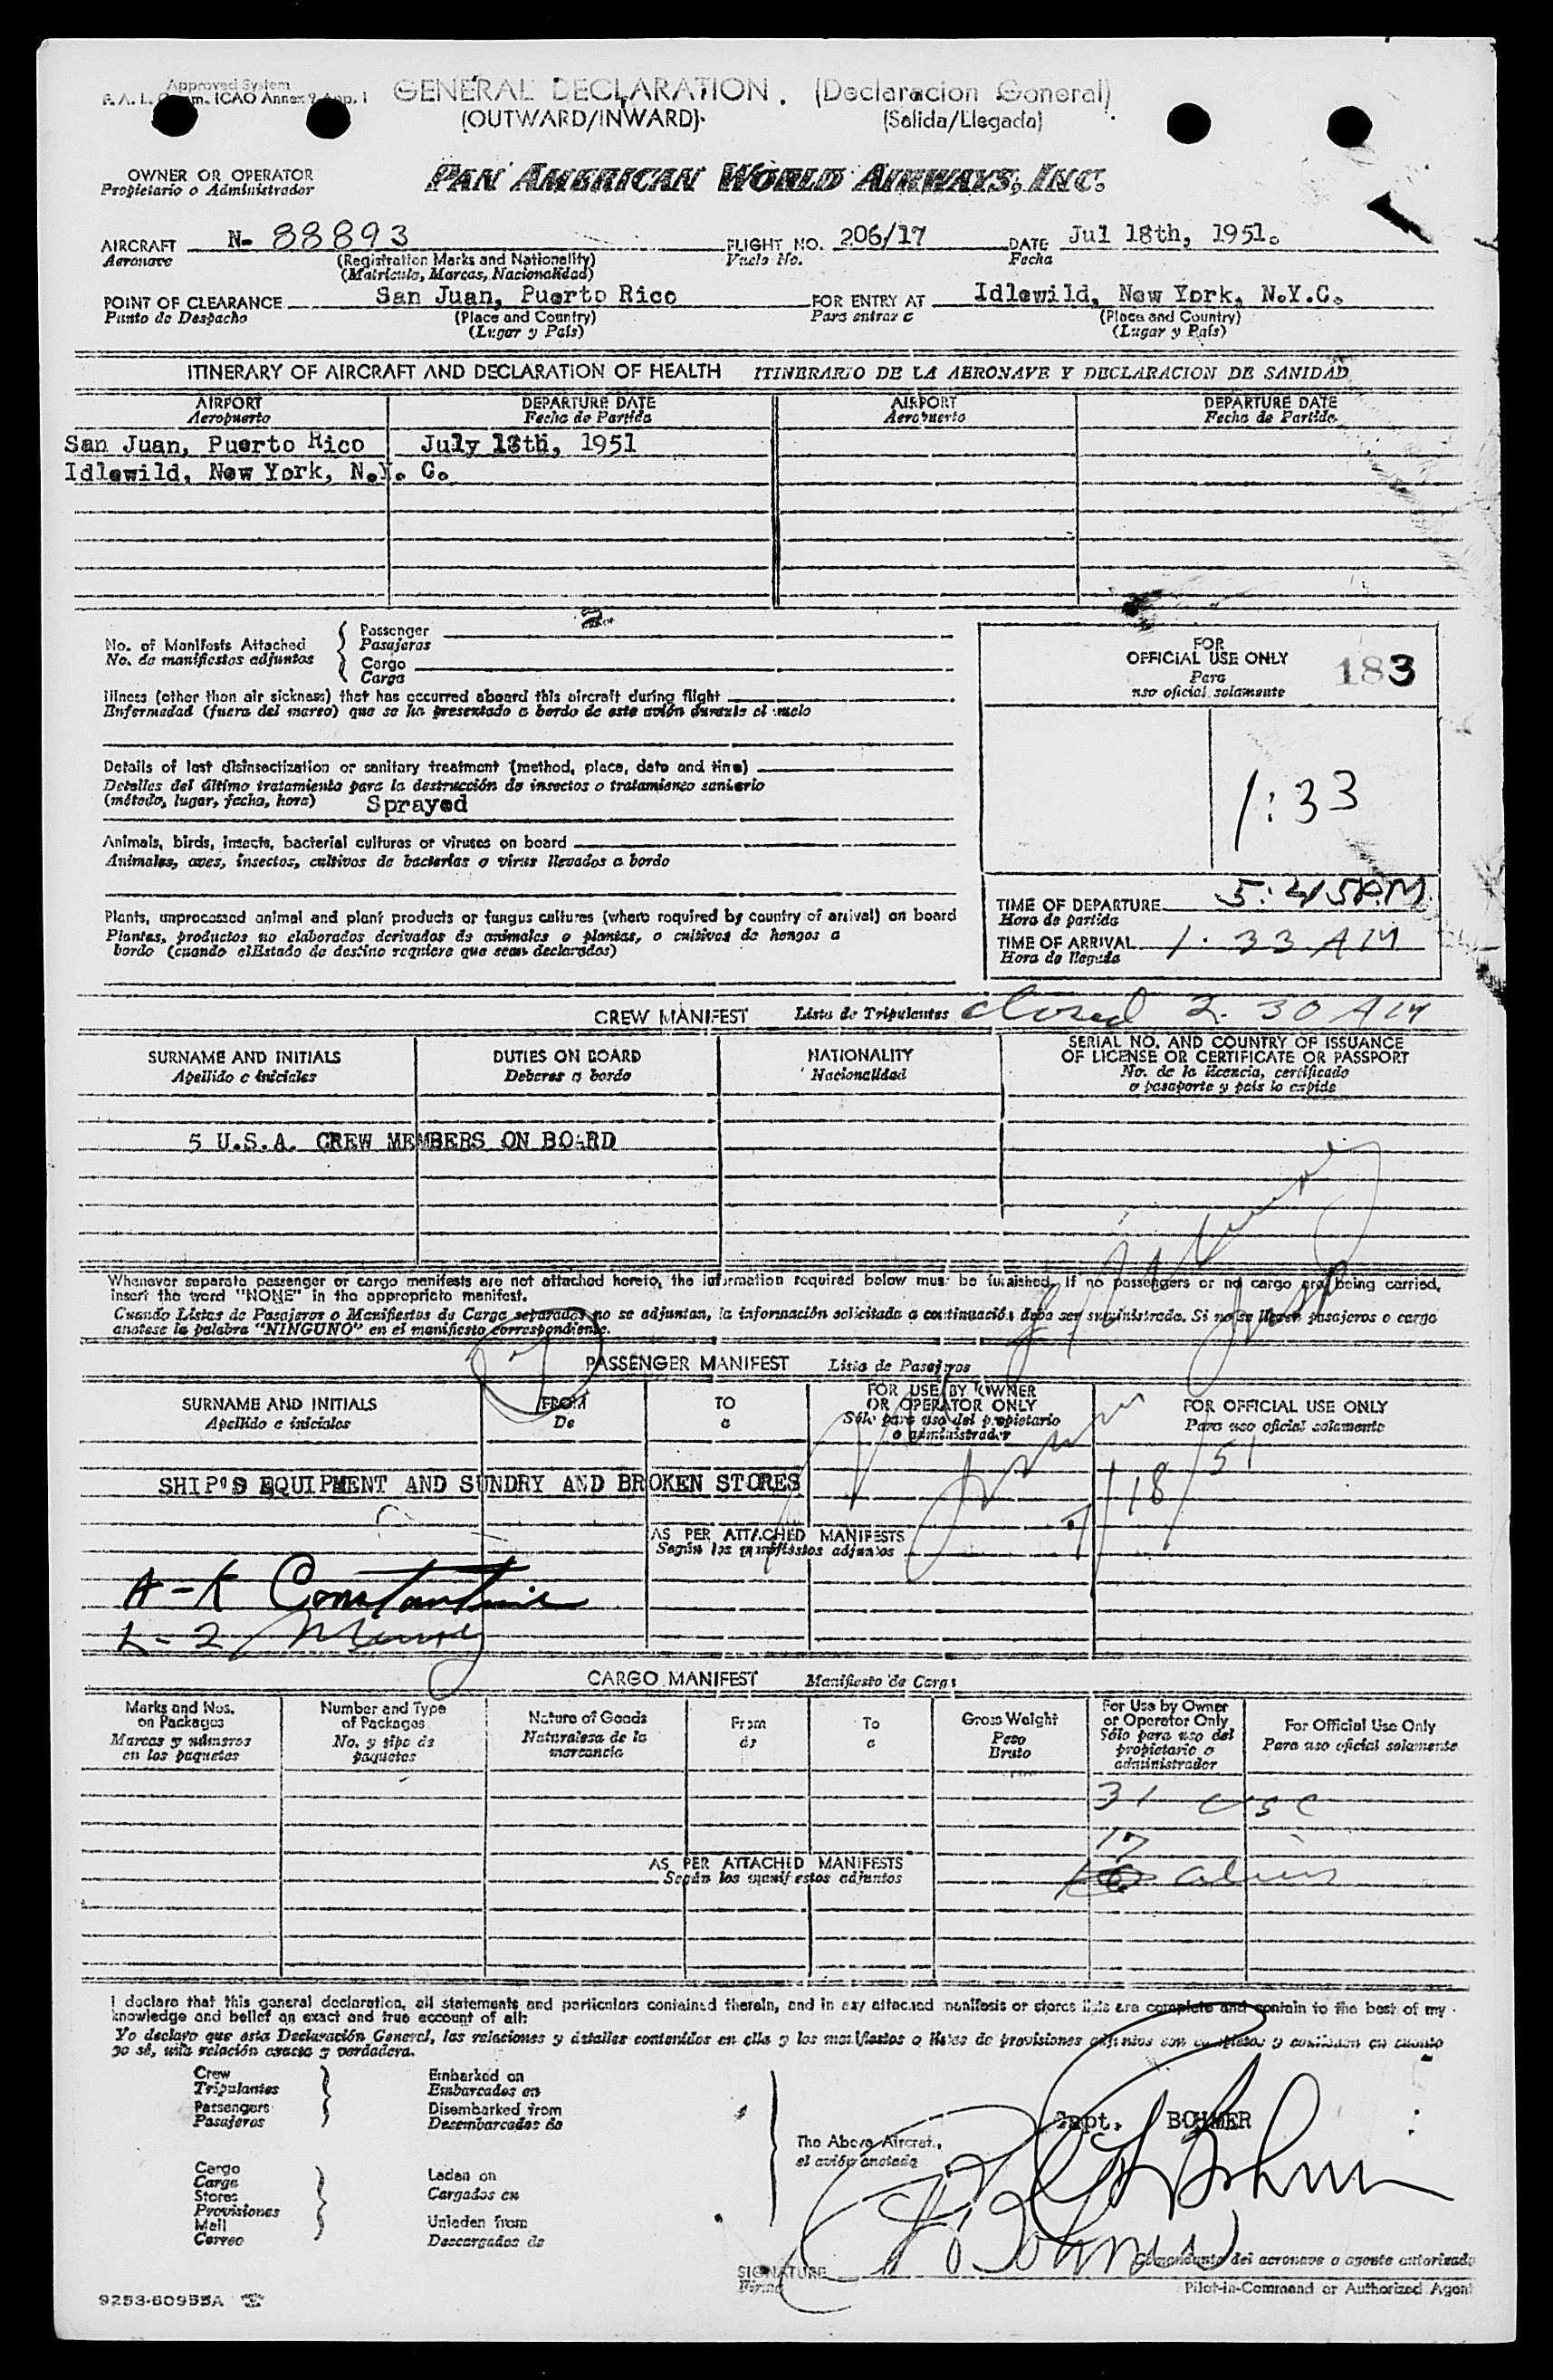 Approved System
F. A. L. Comm. ICAO Annex 9 App. 1
GENERAL DECLARATION. (Declaracion General)
(OUTWARD/INWARD) (Salida/Llegada)
OWNER OR OPERATOR
Propietario o Administrador
PAN AMERICAN WORLD AIRWAYS, INC.
AIRCRAFT N- 88893 FLIGHT NO. 206/17 DATE Jul 18th, 1951.
Aeronave (Registration Marks and Nationality) Vuelo No. Fecha
(Matricula, Marcas, Nacionalidad)
POINT OF CLEARANCE San Juan, Puerto Rico FOR ENTRY AT Idlewild, New York, N.Y.C.
Punto de Despacho (Place and Country) Para entrar a (Place and Country)
(Lugar y País) (Lugar y País)
ITINERARY OF AIRCRAFT AND DECLARATION OF HEALTH ITINERARIO DE LA AERONAVE Y DECLARACION DE SANIDAD
AIRPORT DEPARTURE DATE AIRPORT DEPARTURE DATE
Aeropuerto Fecha de Partida Aeropuerto Fecha de Partida
San Juan, Puerto Rico July 18th, 1951
Idlewild, New York, N.Y. C.
No. of Manifests Attached
No. de manifiestos adjuntos
Passenger 2
Pasajeros
Cargo
Carga
FOR
OFFICIAL USE ONLY
Para
uso oficial solamente
183
Illness (other than air sickness) that has occurred aboard this aircraft during flight
Enfermedad (fuera del mareo) que se ha presentado a bordo de este avión durante el vuelo
Details of last disinsectization or sanitary treatment (method, place, date and time)
Detalles del último tratamiento para la destrucción de insectos o tratamiento sanitario
(método, lugar, fecha, hora) Sprayed
1:33
Animals, birds, insects, bacterial cultures or viruses on board
Animales, aves, insectos, cultivos de bacterias o virus llevados a bordo
TIME OF DEPARTURE 5:45PM
Hora de partida
Plants, unprocessed animal and plant products or fungus cultures (where required by country of arrival) on board
Plantas, productos no elaborados derivados de animales o plantas, o cultivos de hongos a
bordo (cuando el Estado de destino requiere que sean declarados)
TIME OF ARRIVAL 1:33 AM
Hora de llegada
CREW MANIFEST Lista de Tripulantes closed 2:30 AM
SURNAME AND INITIALS DUTIES ON BOARD NATIONALITY SERIAL NO. AND COUNTRY OF ISSUANCE
OF LICENSE OR CERTIFICATE OR PASSPORT
Apellido e iniciales Deberes a bordo Nacionalidad No. de la licencia, certificado
o pasaporte y país lo expide
5 U.S.A. CREW MEMBERS ON BOARD
Whenever separate passenger or cargo manifests are not attached hereto, the information required below must be furnished. If no passengers or no cargo are being carried,
insert the word "NONE" in the appropriate manifest.
Cuando Listas de Pasajeros o Manifiestos de Carga separados no se adjuntan, la información solicitada a continuación debe ser suministrada. Si no se llevan pasajeros o carga
anotese la palabra "NINGUNO" en el manifiesto correspondiente.
PASSENGER MANIFEST Lista de Pasajeros
SURNAME AND INITIALS FROM TO FOR USE BY OWNER
OR OPERATOR ONLY FOR OFFICIAL USE ONLY
Apellido e iniciales De a Sólo para uso del propietario
o administrador Para uso oficial solamente
7/18/51
SHIP'S EQUIPMENT AND SUNDRY AND BROKEN STORES
AS PER ATTACHED MANIFESTS
Según los manifiestos adjuntos
A-K Constantine
L-Z
CARGO MANIFEST Manifiesto de Carga
Marks and Nos.
on Packages
Marcas y números
en los paquetes
Number and Type
of Packages
No. y tipo de
paquetes
Nature of Goods
Naturaleza de la
mercancía
From
de
To
a
Gross Weight
Peso
Bruto
For Use by Owner
or Operator Only
Sólo para uso del
propietario o
administrador
For Official Use Only
Para uso oficial solamente
31 USC
17
aliens
AS PER ATTACHED MANIFESTS
Según los manifiestos adjuntos
I declare that this general declaration, all statements and particulars contained therein, and in any attached manifests or stores lists are complete and contain to the best of my
knowledge and belief an exact and true account of all:
Yo declaro que esta Declaración General, las relaciones y detalles contenidos en ella y los manifiestos o listas de provisiones adjuntos son completos y contienen en cuanto
yo sé, una relación exacta y verdadera.
Crew
Tripulantes
Passengers
Pasajeros
Embarked on
Embarcados en
Disembarked from
Desembarcados de
Cargo
Carga
Stores
Provisiones
Mail
Correo
Laden on
Cargados en
Unladen from
Descargados de
The Above Aircraft,
el avión anotado
Capt. BOHMER
SIGNATURE
Firma
Comandante del aeronave o agente autorizado
Pilot-in-Command or Authorized Agent
9253-60955A